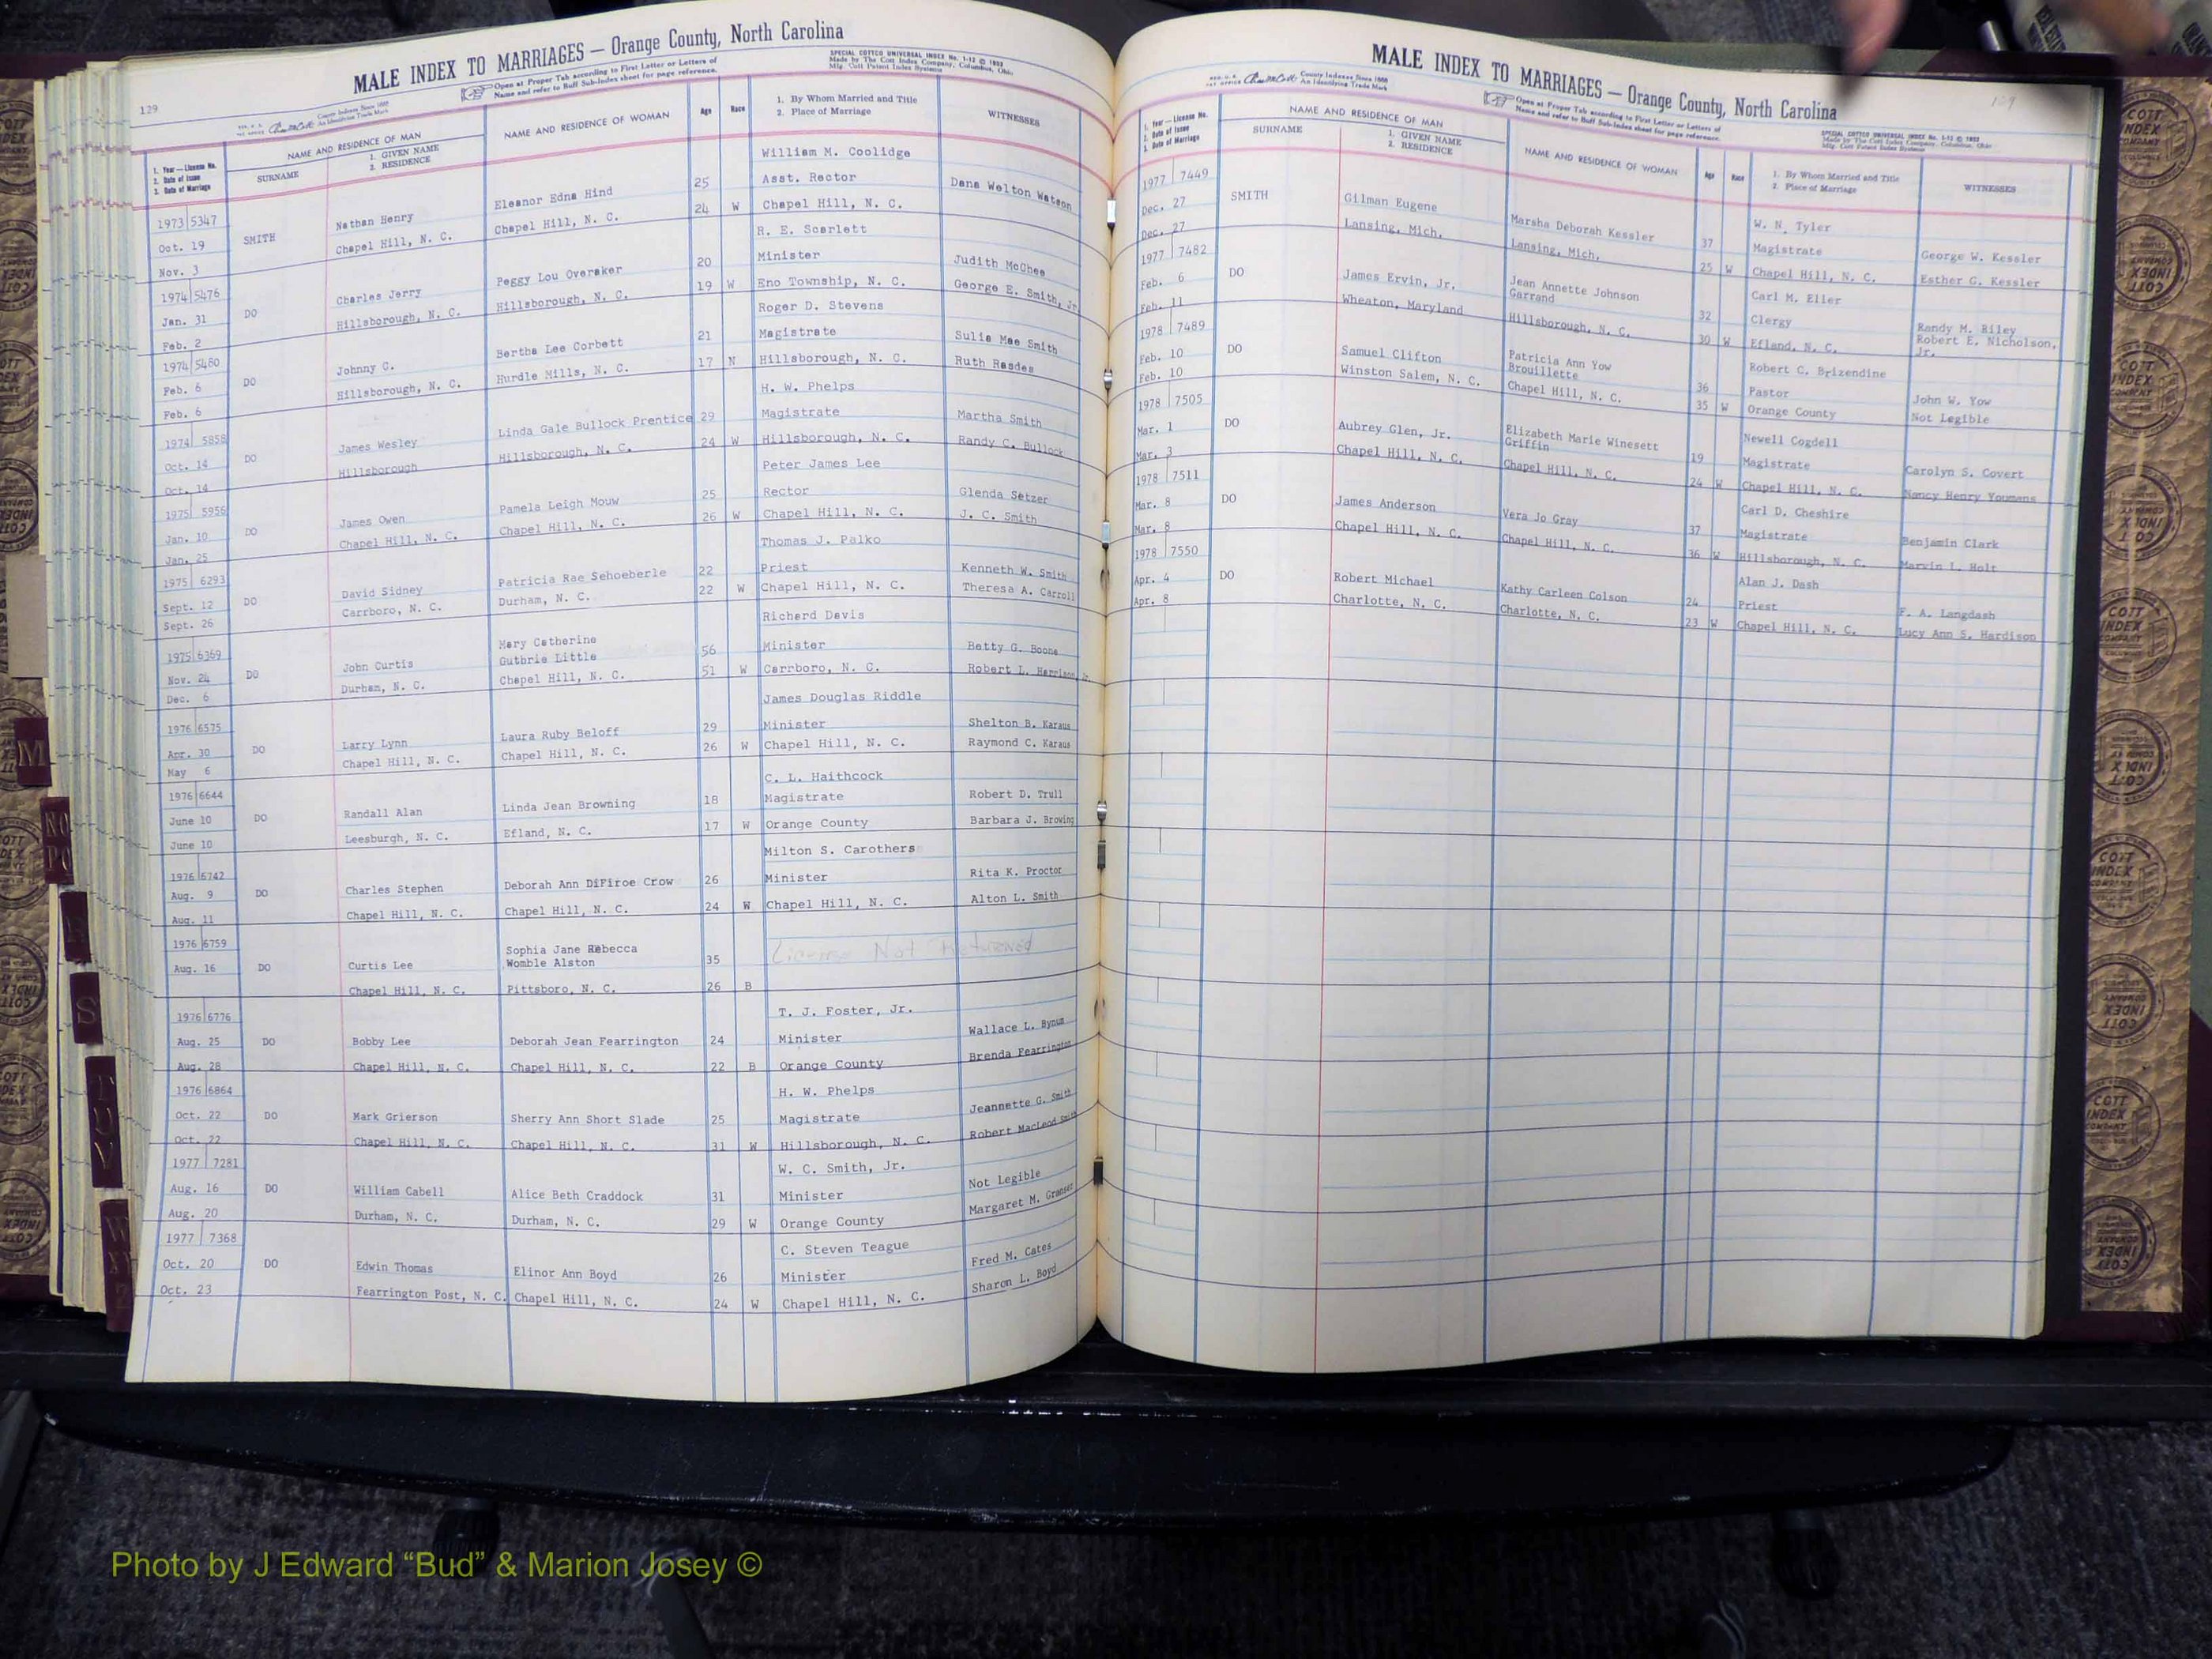 129
MALE INDEX TO MARRIAGES — Orange County, North Carolina
Open at Proper Tab according to First Letter or Letters of
Name and refer to Buff Sub-Index sheet for page reference.
SPECIAL COTTCO UNIVERSAL INDEX No. 1-12 © 1953
Made by The Cott Index Company, Columbus, Ohio
Mfg. Cott Patent Index Systems
County Indexes Since 1888
An Identifying Trade Mark
1. Year — License No.
2. Date of Issue
3. Date of Marriage
NAME AND RESIDENCE OF MAN
SURNAME
1. GIVEN NAME
2. RESIDENCE
NAME AND RESIDENCE OF WOMAN
Age
Race
1. By Whom Married and Title
2. Place of Marriage
WITNESSES
William M. Coolidge
1973 5347 Nathan Henry Eleanor Edna Hind 25 Asst. Rector Dana Welton Watson
Oct. 19 SMITH Chapel Hill, N. C. Chapel Hill, N. C. 24 W Chapel Hill, N. C.
Nov. 3
R. E. Scarlett
1974 5476 Charles Jerry Peggy Lou Overaker 20 Minister Judith McGhee
Jan. 31 DO Hillsborough, N. C. Hillsborough, N. C. 19 W Eno Township, N. C. George E. Smith, Jr.
Feb. 2
Roger D. Stevens
1974 5480 Johnny G. Bertha Lee Corbett 21 Magistrate Sulie Mae Smith
Feb. 6 DO Hillsborough, N. C. Hurdle Mills, N. C. 17 N Hillsborough, N. C. Ruth Rasdes
Feb. 6
H. W. Phelps
1974 5858 James Wesley Linda Gale Bullock Prentice 29 Magistrate Martha Smith
Oct. 14 DO Hillsborough Hillsborough, N. C. 24 W Hillsborough, N. C. Randy C. Bullock
Oct. 14
Peter James Lee
1975 5956 James Owen Pamela Leigh Mouw 25 Rector Glenda Setzer
Jan. 10 DO Chapel Hill, N. C. Chapel Hill, N. C. 26 W Chapel Hill, N. C. J. C. Smith
Jan. 25
Thomas J. Palko
1975 6293 David Sidney Patricia Rae Sehoeberle 22 Priest Kenneth W. Smith
Sept. 12 DO Carrboro, N. C. Durham, N. C. 22 W Chapel Hill, N. C. Theresa A. Carroll
Sept. 26
Richard Davis
Mary Catherine
1975 6369 John Curtis Guthrie Little 56 Minister Betty G. Boone
Nov. 24 DO Durham, N. C. Chapel Hill, N. C. 51 W Carrboro, N. C. Robert L. Harrison, Jr.
Dec. 6
James Douglas Riddle
1976 6575 Larry Lynn Laura Ruby Beloff 29 Minister Shelton B. Karaus
Apr. 30 DO Chapel Hill, N. C. Chapel Hill, N. C. 26 W Chapel Hill, N. C. Raymond C. Karaus
May 6
C. L. Haithcock
1976 6644 Randall Alan Linda Jean Browning 18 Magistrate Robert D. Trull
June 10 DO Leesburgh, N. C. Efland, N. C. 17 W Orange County Barbara J. Browing
June 10
Milton S. Carothers
1976 6742 Charles Stephen Deborah Ann DiFiroe Crow 26 Minister Rita K. Proctor
Aug. 9 DO Chapel Hill, N. C. Chapel Hill, N. C. 24 W Chapel Hill, N. C. Alton L. Smith
Aug. 11
1976 6759 Sophia Jane Rebecca License Not Returned
Aug. 16 DO Curtis Lee Womble Alston 35
Chapel Hill, N. C. Pittsboro, N. C. 26 B
T. J. Foster, Jr.
1976 6776
Aug. 25 DO Bobby Lee Deborah Jean Fearrington 24 Minister Wallace L. Bynum
Aug. 28 Chapel Hill, N. C. Chapel Hill, N. C. 22 B Orange County Brenda Fearrington
1976 6864 H. W. Phelps
Oct. 22 DO Mark Grierson Sherry Ann Short Slade 25 Magistrate Jeannette G. Smith
Oct. 22 Chapel Hill, N. C. Chapel Hill, N. C. 31 W Hillsborough, N. C. Robert MacLeod Smith
1977 7281 W. C. Smith, Jr.
Aug. 16 DO William Cabell Alice Beth Craddock 31 Minister Not Legible
Aug. 20 Durham, N. C. Durham, N. C. 29 W Orange County Margaret M.
1977 7368 C. Steven Teague
Oct. 20 DO Edwin Thomas Elinor Ann Boyd 26 Minister Fred M. Cates
Oct. 23 Fearrington Post, N. C. Chapel Hill, N. C. 24 W Chapel Hill, N. C. Sharon L. Boyd
129
MALE INDEX TO MARRIAGES — Orange County, North Carolina
County Indexes Since 1888
An Identifying Trade Mark
Open at Proper Tab according to First Letter or Letters of
Name and refer to Buff Sub-Index sheet for page reference.
SPECIAL COTTCO UNIVERSAL INDEX No. 1-12 © 1953
Made by The Cott Index Company, Columbus, Ohio
Mfg. Cott Patent Index Systems
1. Year — License No.
2. Date of Issue
3. Date of Marriage
NAME AND RESIDENCE OF MAN
SURNAME
1. GIVEN NAME
2. RESIDENCE
NAME AND RESIDENCE OF WOMAN
Age
Race
1. By Whom Married and Title
2. Place of Marriage
WITNESSES
1977 7449 W. N. Tyler
Dec. 27 SMITH Gilman Eugene Marsha Deborah Kessler 37 Magistrate George W. Kessler
Dec. 27 Lansing, Mich. Lansing, Mich. 25 W Chapel Hill, N. C. Esther G. Kessler
1977 7482 Carl M. Elier
Feb. 6 DO James Ervin, Jr. Jean Annette Johnson
Garrand 32 Clergy Randy M. Riley
Feb. 11 Wheaton, Maryland Hillsborough, N. C. 30 W Efland, N. C. Robert E. Nicholson,
Jr.
1978 7489 Robert C. Brizendine
Feb. 10 DO Samuel Clifton Patricia Ann Yow
Brouillette 36 Pastor John W. Yow
Feb. 10 Winston Salem, N. C. Chapel Hill, N. C. 35 W Orange County Not Legible
1978 7505 Newell Cogdell
Mar. 1 DO Aubrey Glen, Jr. Elizabeth Marie Winesett
Griffin 19 Magistrate Carolyn S. Covert
Mar. 3 Chapel Hill, N. C. Chapel Hill, N. C. 24 W Chapel Hill, N. C. Nancy Henry Youmans
1978 7511 Carl D. Cheshire
Mar. 8 DO James Anderson Vera Jo Gray 37 Magistrate Benjamin Clark
Mar. 8 Chapel Hill, N. C. Chapel Hill, N. C. 36 W Hillsborough, N. C. Marvin L. Holt
1978 7550 Alan J. Dash
Apr. 4 DO Robert Michael Kathy Carleen Colson 24 Priest F. A. Langdash
Apr. 8 Charlotte, N. C. Charlotte, N. C. 23 W Chapel Hill, N. C. Lucy Ann S. Hardison
M
NO
PQ
R
S
T
U
V
W
COTT
INDEX
COMPANY
Photo by J Edward “Bud” & Marion Josey ©